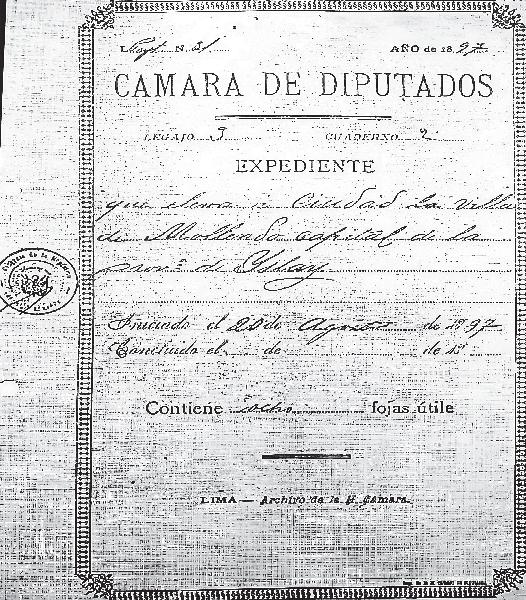 N. 31 AÑO de 1897
CAMARA DE DIPUTADOS
LEGAJO 3 CUADERNO 2
EXPEDIENTE
que eleva a Ciudad la Villa
de Mollendo capital de la
prov.ª de Yslay
Iniciado el 20 de Agosto de 1897
Concluido el de de 18
Contiene ocho fojas útile
LIMA — Archivo de la H. Cámara.